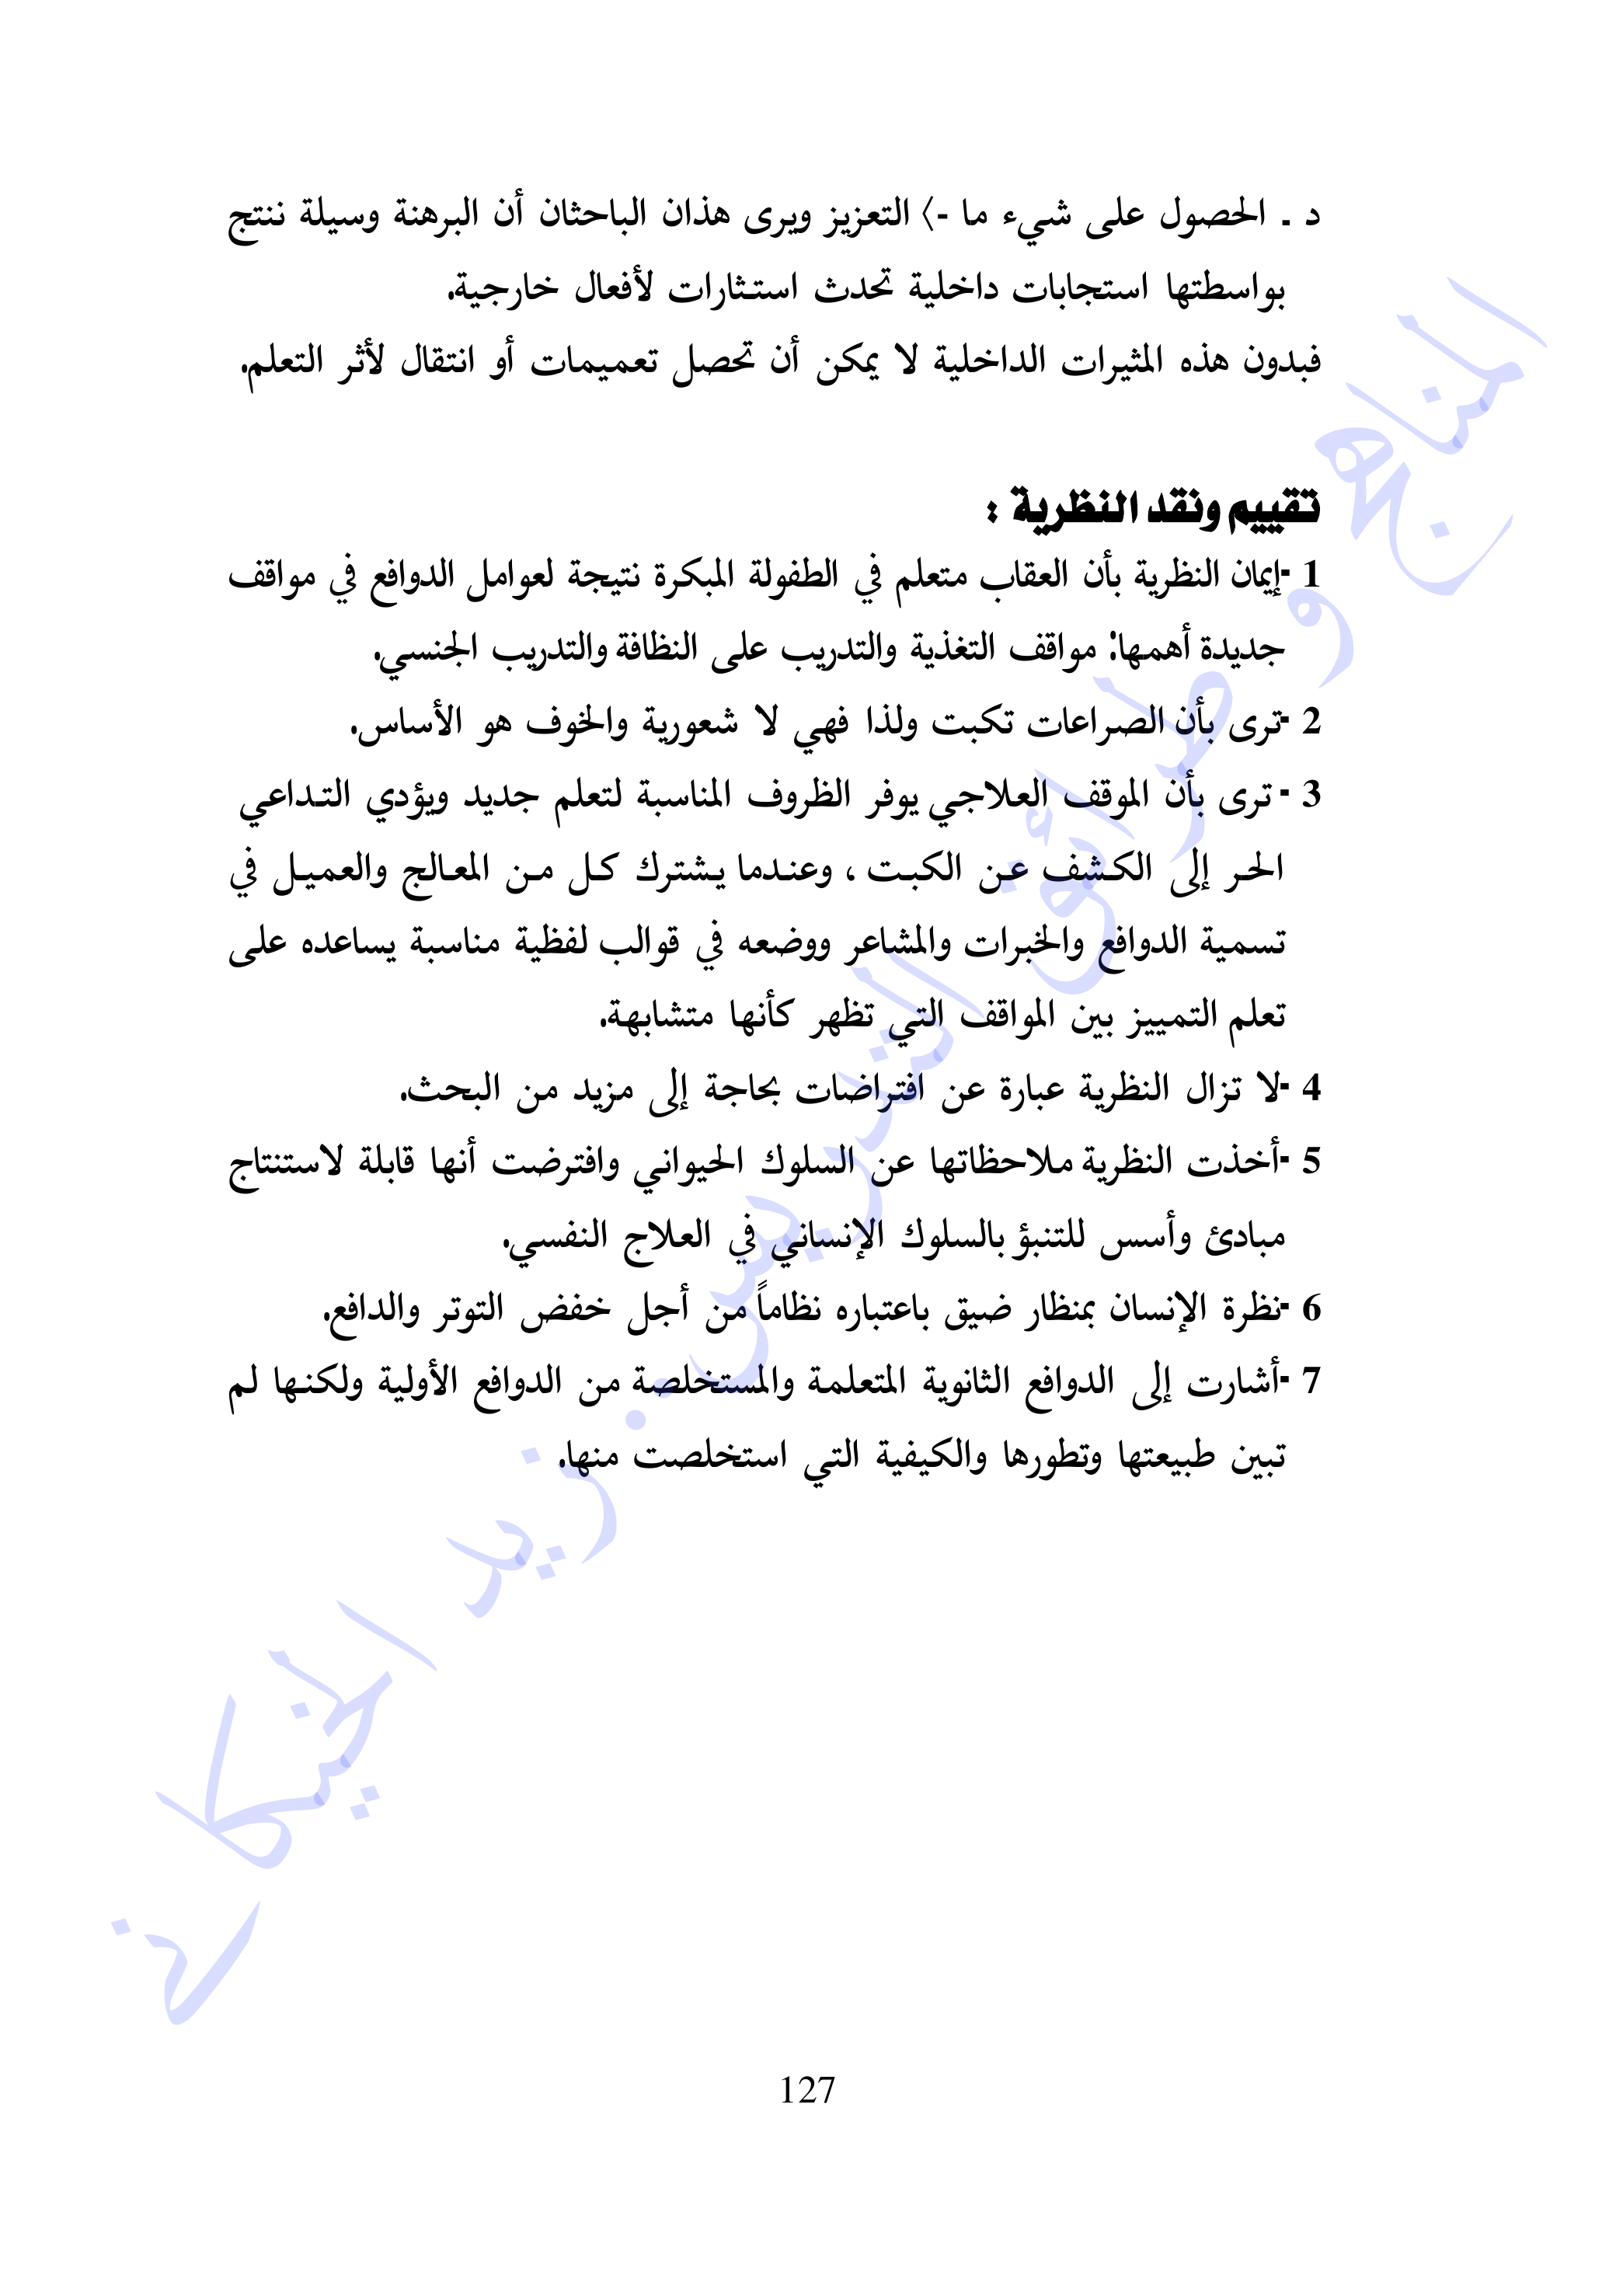 د ـ الحصول على شيء ما -〉 التعزيز ويرى هذان الباحثان أن البرهنة وسيلة ننتج
بواسطتها استجابات داخلية تحدث استثارات لأفعال خارجية.
فبدون هذه المثيرات الداخلية لا يمكن أن تحصل تعميمات أو انتقال لأثر التعلم.
تقييم ونقد النظرية :
1 -إيمان النظرية بأن العقاب متعلم في الطفولة المبكرة نتيجة لعوامل الدوافع في مواقف
جديدة أهمها: مواقف التغذية والتدريب على النظافة والتدريب الجنسي.
2 -ترى بأن الصراعات تكبت ولذا فهي لا شعورية والخوف هو الأساس.
3 - ترى بأن الموقف العلاجي يوفر الظروف المناسبة لتعلم جديد ويؤدي التداعي
الحر إلى الكشف عن الكبت ، وعندما يشترك كل من المعالج والعميل في
تسمية الدوافع والخبرات والمشاعر ووضعه في قوالب لفظية مناسبة يساعده على
تعلم التمييز بين المواقف التي تظهر كأنها متشابهة.
4 -لا تزال النظرية عبارة عن افتراضات بحاجة إلى مزيد من البحث.
5 -أخذت النظرية ملاحظاتها عن السلوك الحيواني وافترضت أنها قابلة لاستنتاج
مبادئ وأسس للتنبؤ بالسلوك الإنساني في العلاج النفسي.
6 -نظرة الإنسان بمنظار ضيق باعتباره نظاماً من أجل خفض التوتر والدافع.
7 -أشارت إلى الدوافع الثانوية المتعلمة والمستخلصة من الدوافع الأولية ولكنها لم
تبين طبيعتها وتطورها والكيفية التي استخلصت منها.
المناهج وطرائق التدريس. زيد الخيكاني
127